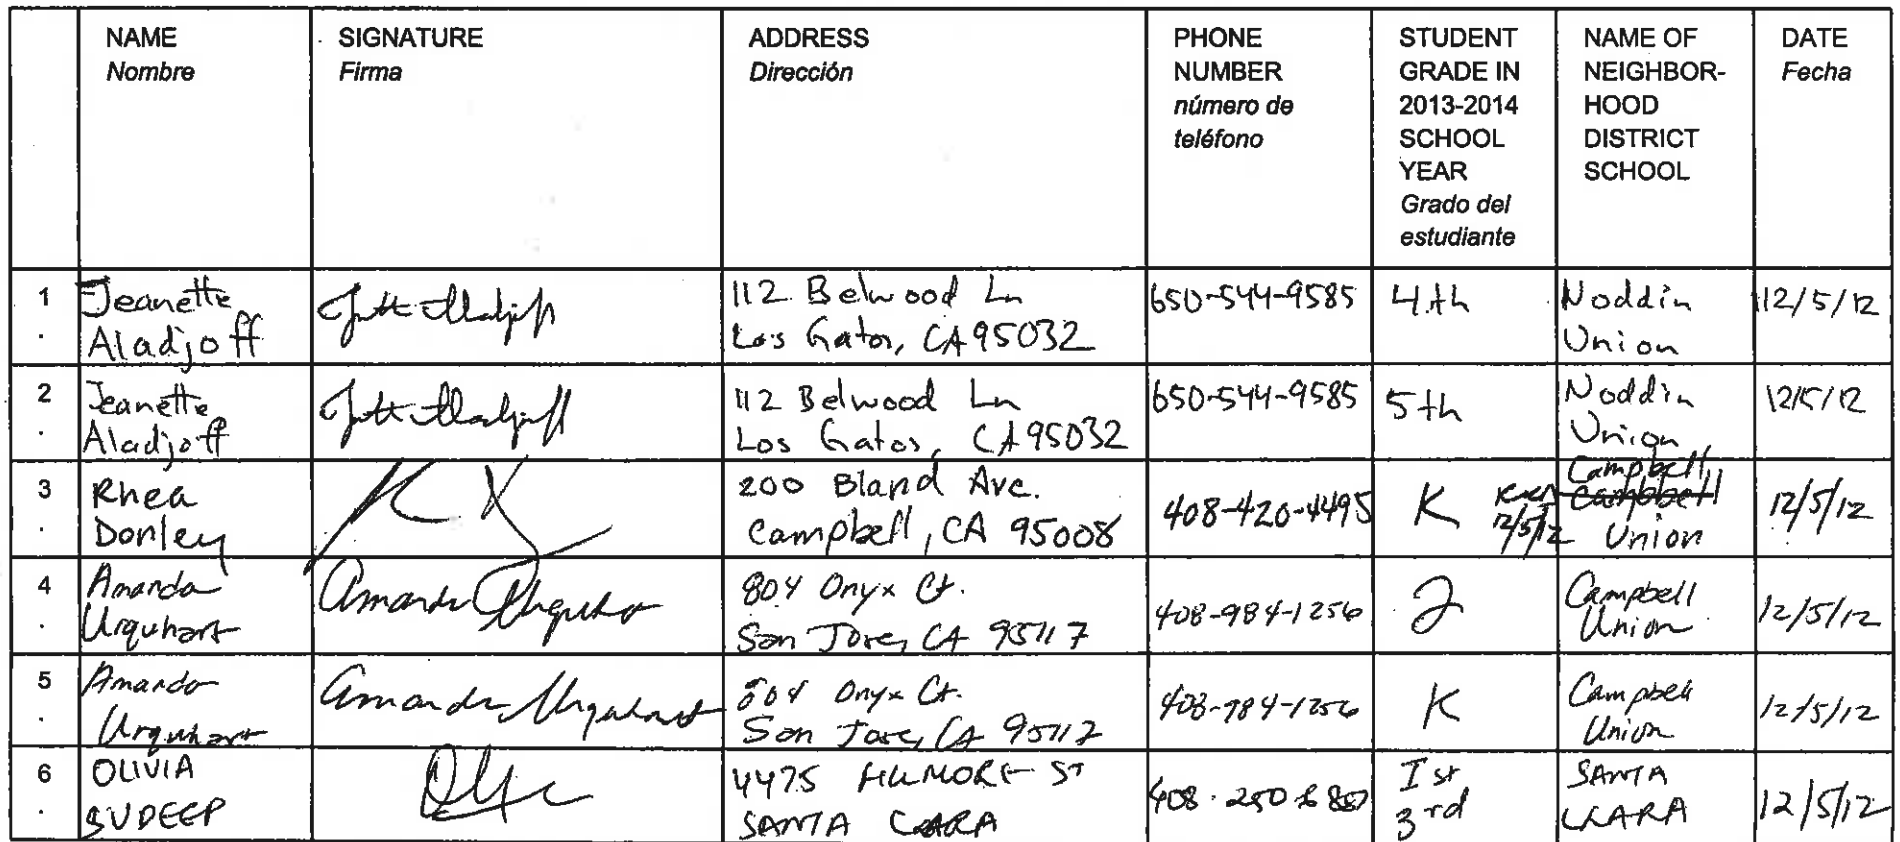 NAME
Nombre
SIGNATURE
Firma
ADDRESS
Dirección
PHONE
NUMBER
número de
teléfono
STUDENT
GRADE IN
2013-2014
SCHOOL
YEAR
Grado del
estudiante
NAME OF
NEIGHBOR-
HOOD
DISTRICT
SCHOOL
DATE
Fecha
1
.
Jeanette
Aladjoff
112 Belwood Ln
Los Gatos, CA 95032
650-544-9585
4th
Noddin
Union
12/5/12
2
.
Jeanette
Aladjoff
112 Belwood Ln
Los Gatos, CA 95032
650-544-9585
5th
Noddin
Union
12/5/12
3
.
Rhea
Donley
200 Bland Ave.
Campbell, CA 95008
408-420-4495
K
12/5/12
Campbell
Campbell
Union
12/5/12
4
.
Amanda
Urquhart
Amanda Urquhart
804 Onyx Ct.
San Jose, CA 95117
408-984-1256
2
Campbell
Union
12/5/12
5
.
Amanda
Urquhart
Amanda Urquhart
804 Onyx Ct.
San Jose, CA 95117
408-984-1256
K
Campbell
Union
12/5/12
6
.
OLIVIA
SUDEEP
4475 FILLMORE ST
SANTA CLARA
408-250
1st
3rd
SANTA
CLARA
12/5/12